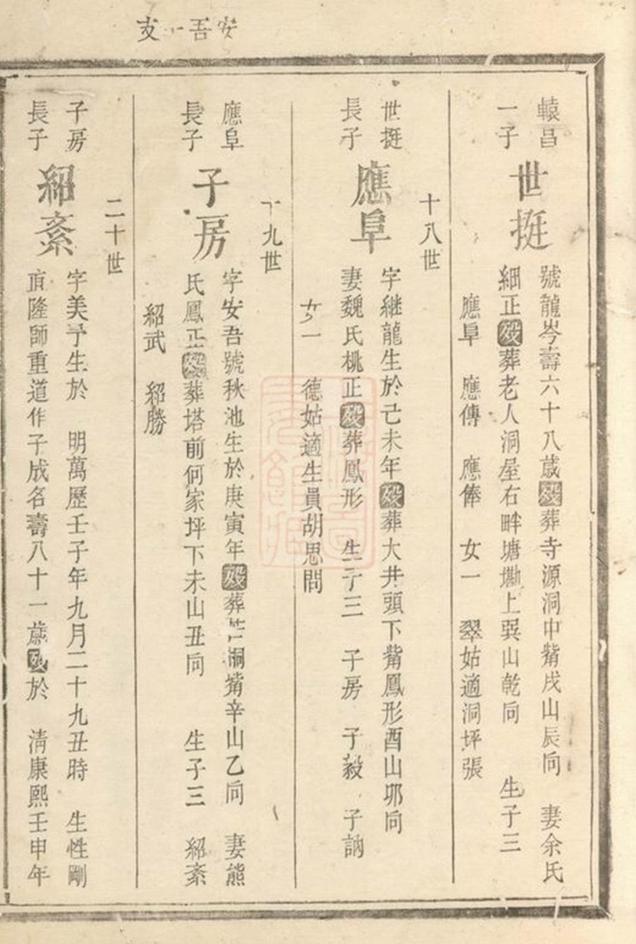 安吾一支
轅昌
一子
世挺
號龍岑壽六十八歲歿葬寺源洞中觜戌山辰向　妻余氏
細正歿葬老人洞屋右畔塘墈上巽山乾向　生子三
應阜　應傳　應俸　女一　翠姑適洞坪張
十八世
世挺
長子
應阜
字継龍生於己未年歿葬大井頭下觜鳳形酉山邜向
妻魏氏桃正歿葬鳳形　生子三　子房　子毅　子訥
女一　德姑適生員胡思問
十九世
應阜
長子
子房
字安吾號秋池生於庚寅年歿葬洞觜辛山乙向　妻熊
氏鳳正歿葬塔前何家坪下未山丑向　生子三　紹紊
紹武　紹勝
二十世
子房
長子
紹紊
字美予生於　明萬歷壬子年九月二十九丑時　生性剛
直隆師重道作子成名壽八十一歲歿於　清康熙壬申年